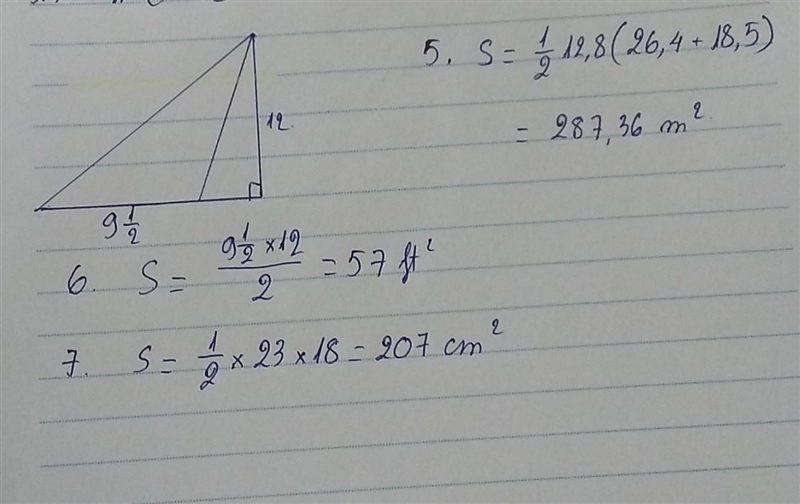 5. S = 1/2 12,8 (26,4 + 18,5)
= 287,36 m²
12
9 1/2
6. S = (9 1/2 × 12)/2 = 57 ft²
7. S = 1/2 × 23 × 18 = 207 cm²